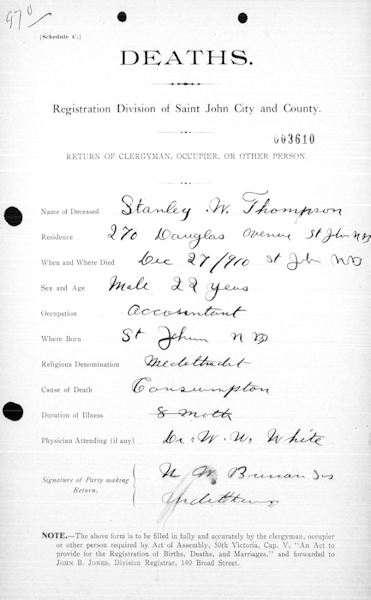 970
(Schedule C.)
DEATHS.
Registration Division of Saint John City and County.
003610
RETURN OF CLERGYMAN, OCCUPIER, OR OTHER PERSON.
Name of Deceased Stanley W. Thompson
Residence 270 Douglas Avenue St John NB
When and Where Died Dec 27/910 St John NB
Sex and Age Male 22 years
Occupation Accountant
Where Born St John NB
Religious Denomination Methodist
Cause of Death Consumpton
Duration of Illness 8 Moth
Physician Attending (if any) Dr. W. W. White
Signature of Party making N W Brenan Sns
Return,
NOTE.—The above form is to be filled in fully and accurately by the clergyman, occupier
or other person required by Act of Assembly, 50th Victoria, Cap. V, "An Act to
provide for the Registration of Births, Deaths, and Marriages," and forwarded to
JOHN B. JONES, Division Registrar, 140 Broad Street.